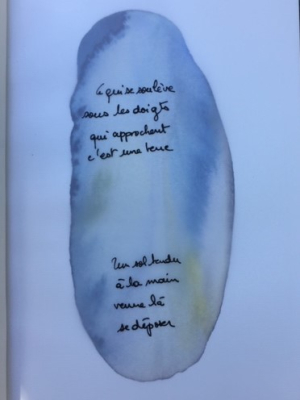 Ce qui se soulève
sous les doigts
qui approchent
c'est une terre
Un sol tendu
à la main
venue là
se déposer